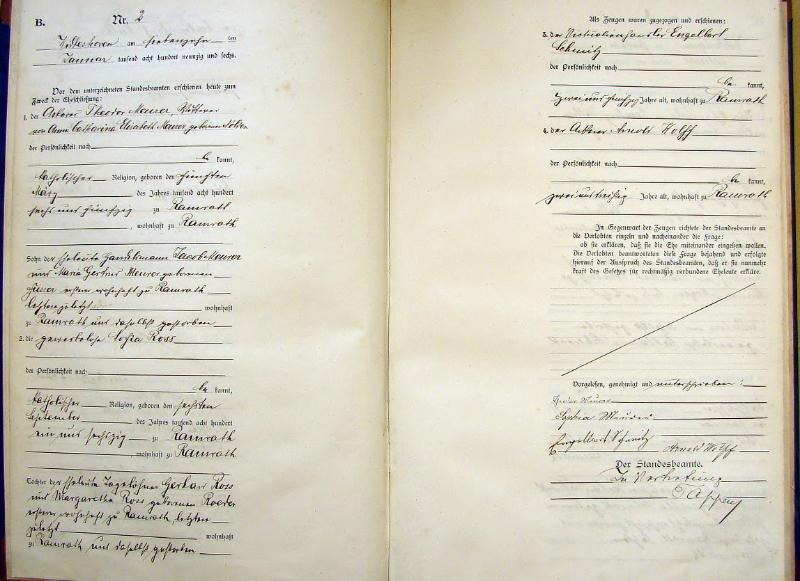 B.
Nr. 2
am siebenzehnten
Januar tausend acht hundert neunzig und sechs.
Vor dem unterzeichneten Standesbeamten erschienen heute zum
Zweck der Eheschließung:
1. der Ackerer Theodor Maurer, Wittwer
von Anna Catharina Elisabeth Maurer geborenen
der Persönlichkeit nach
be kannt,
katholischer Religion, geboren den fünften
März des Jahres tausend acht hundert
sechs und fünfzig zu Ramrath
, wohnhaft zu Ramrath
Sohn der Eheleute Handelsmann Jacob Maurer
und Maria Gertrud Maurer geborenen
ersterer wohnhaft zu Ramrath
letztere zuletzt wohnhaft
zu Ramrath und daselbst gestorben
2. die gewerbelose Sofia Ross
der Persönlichkeit nach
be kannt,
katholischer Religion, geboren den sechsten
September des Jahres tausend acht hundert
ein und sechszig zu Ramrath
, wohnhaft zu Ramrath
Tochter der Eheleute Tagelöhner Gerhard Ross
und Margaretha Ross geborenen Roeder
ersterer wohnhaft zu Ramrath, letztere
zuletzt wohnhaft
zu Ramrath und daselbst gestorben
Als Zeugen waren zugezogen und erschienen:
3. der Victualienhändler Engelbert
Schmitz
der Persönlichkeit nach
be kannt,
zwei und fünfzig Jahre alt, wohnhaft zu Ramrath
4. der Ackerer Arnold Wolff
der Persönlichkeit nach
be kannt,
zwei und dreißig Jahre alt, wohnhaft zu Ramrath
In Gegenwart der Zeugen richtete der Standesbeamte an
die Verlobten einzeln und nacheinander die Frage:
ob sie erklären, daß sie die Ehe miteinander eingehen wollen.
Die Verlobten beantworteten diese Frage bejahend und erfolgte
hierauf der Ausspruch des Standesbeamten, daß er sie nunmehr
kraft des Gesetzes für rechtmäßig verbundene Eheleute erkläre.
Vorgelesen, genehmigt und unterschrieben:
Sophia Maurer
Engelbert Schmitz
Arnold Wolff
Der Standesbeamte.
In Vertretung